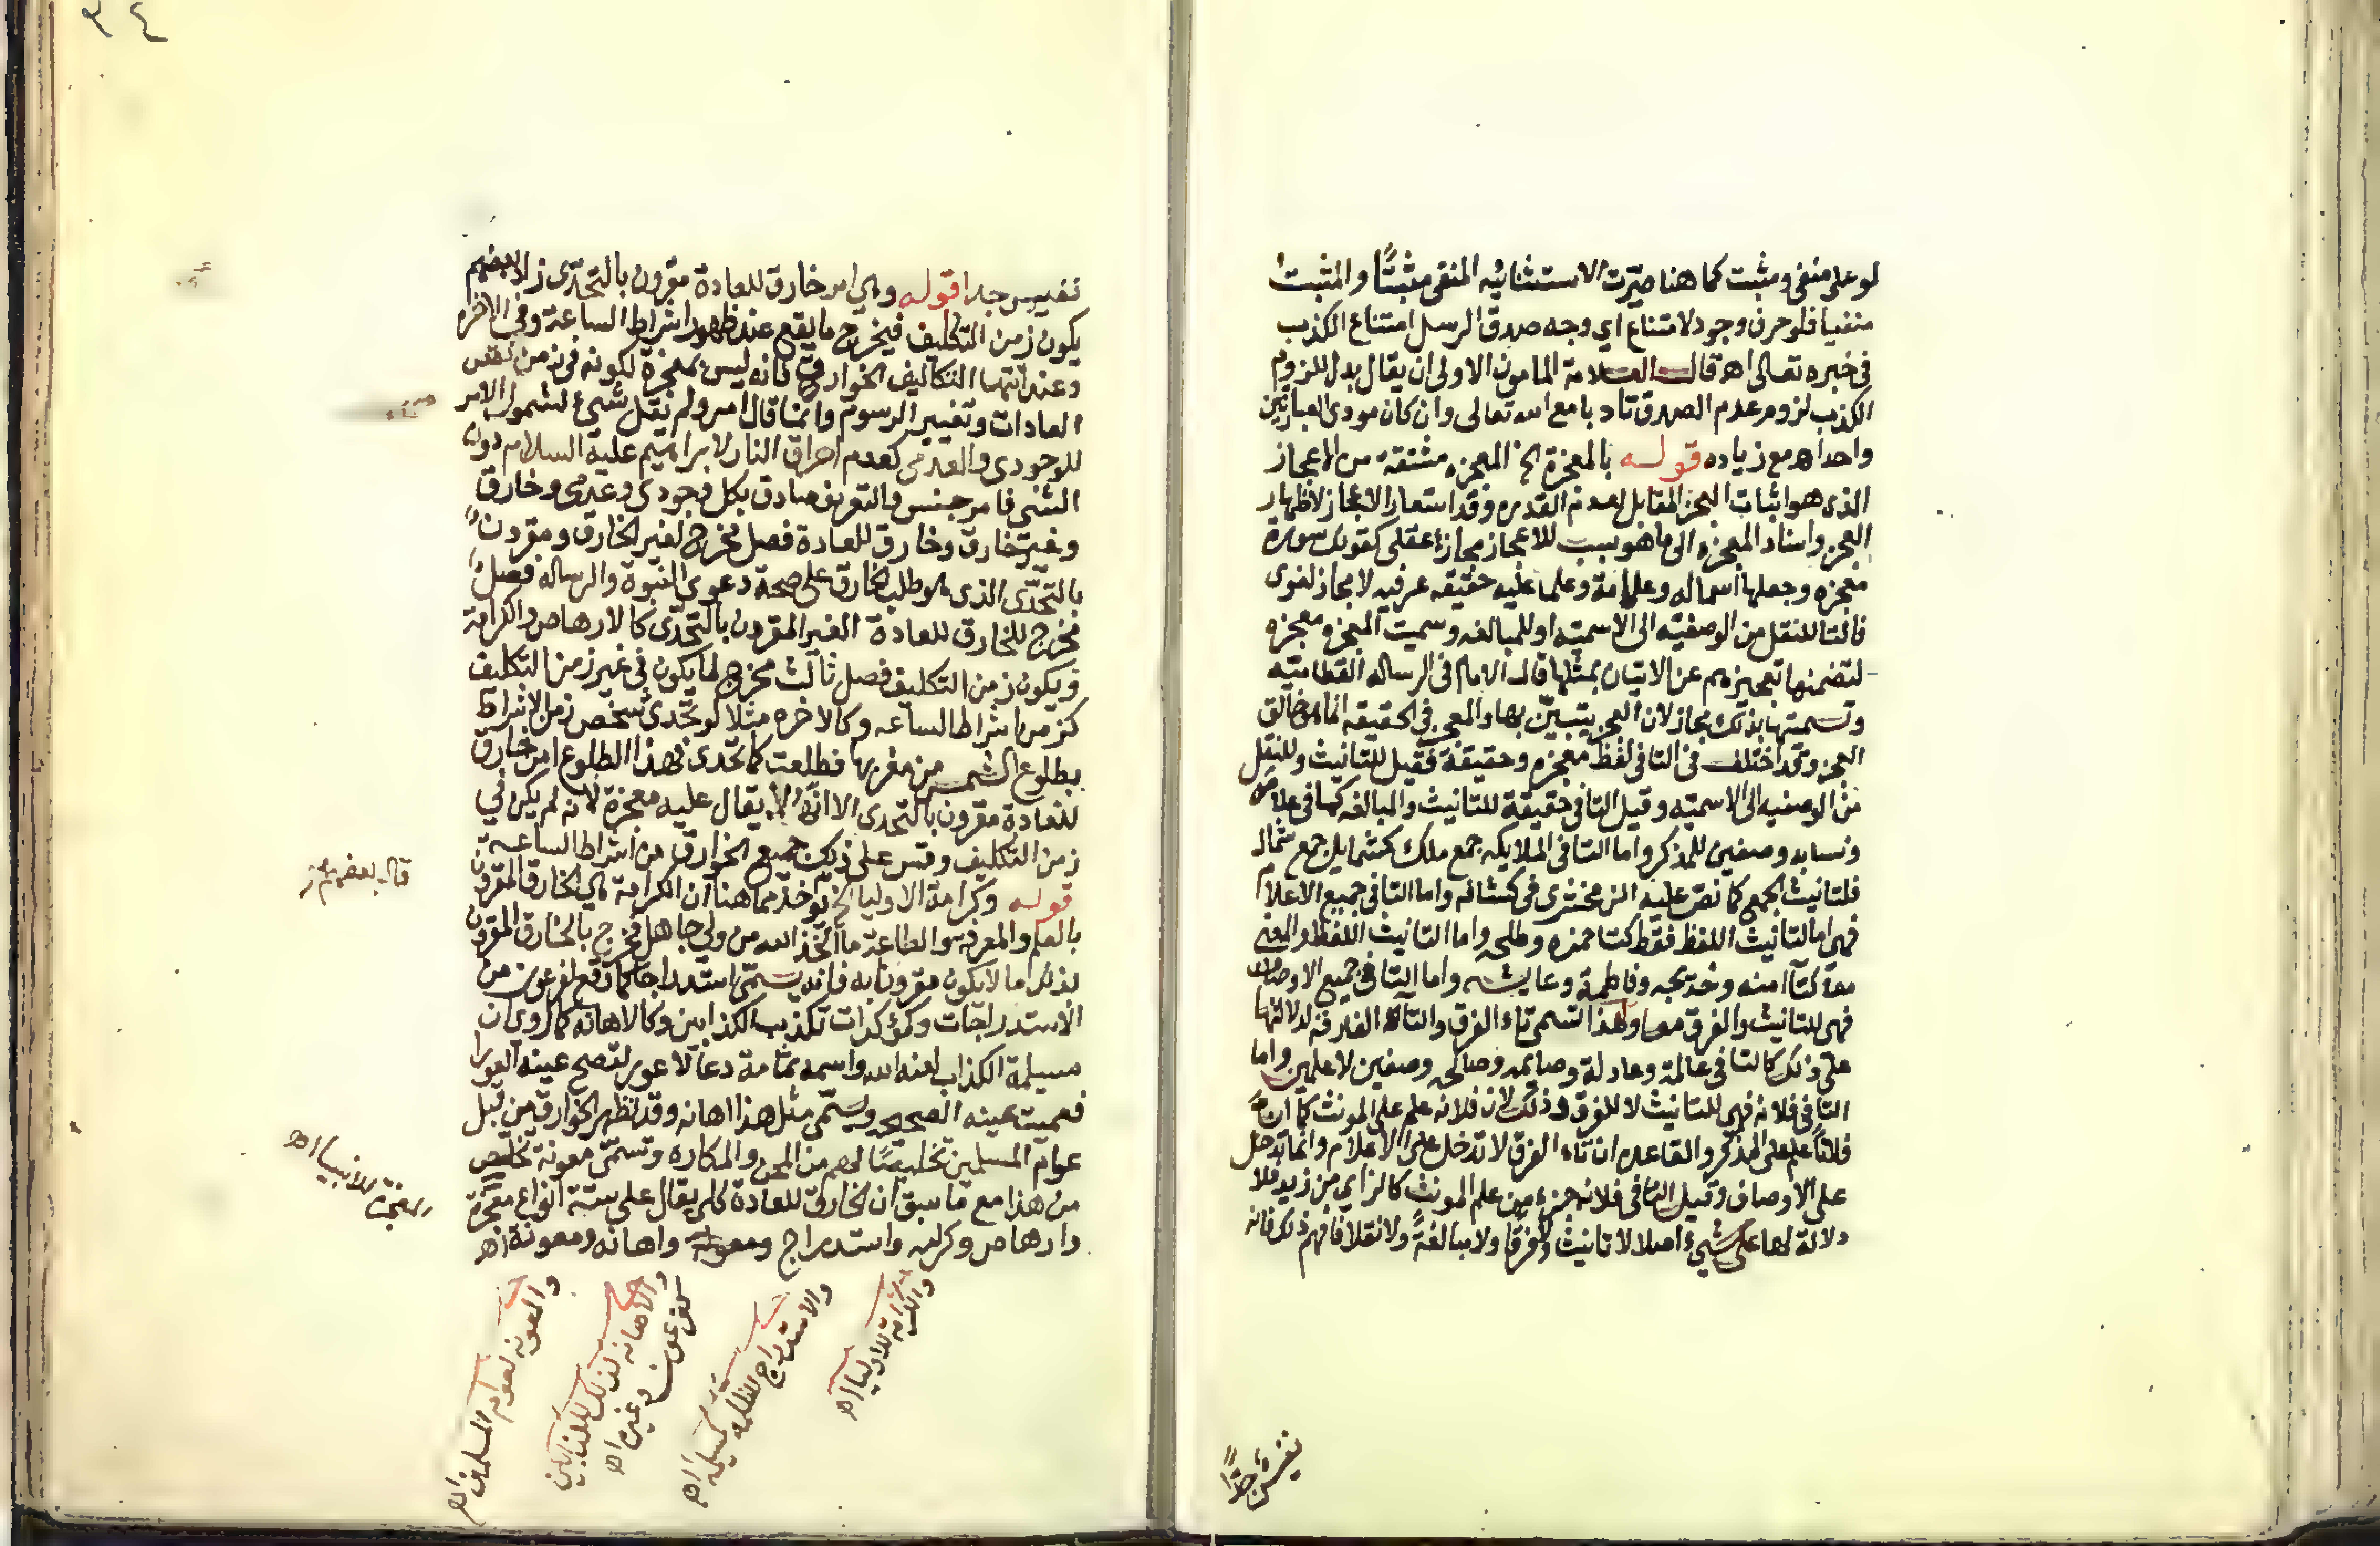 لو على منفى ومثبت كما هنا صيّرت الاستثنائيه المنفى مثبتًا والمثبت
منفيا فلو حرف وجود لامتناع اي وجه صدق الرسل امتناع الكذب
فى خبره تعالى اه قال العلامة المامون الاولى ان يقال بدل لزوم
الكذب لزوم عدم الصدق تادبا مع الله تعالى وان كان مودى العبارتين
واحدا اه مع زياده قوله بالمعجزة الخ المعجزه مشتقة من الاعجاز
الذى هو اثبات العجز المقابل لعدم القدره وقد استعار الاعجاز لاظهار
العجز واسناد المعجزه الى ما هو سبب للاعجاز مجازا عقلى كقولك سورة
معجزه وجعلها اسما له وعلامة وعلما عليه حقيقه عرفيه لا مجاز لغوى
فالتا للنقل من الوصفيّه الى الاسميّه او للمبالغه وسميت المعجزه معجزه
لتضمنها تعجيزهم عن الاتيان بمثلها قال الامام فى الرساله النظاميّه
وتسميتها بذلك مجاز لان العجز يتبيّن بها والمعجز فى الحقيقه انما هو خالق
العجز وقد اختلف فى التا فى لفظ معجزه وحقيقة فقيل للتانيث وللنقل
من الوصفيه الى الاسميّه وقيل التا فى حقيقة للتانيث والمبالغه كما فى علامه
ونسابه وصفين للمذكر واما التا فى الملايكه جمع ملك كشمايل جمع شمال
فلتانيث الجمع كما نصّ عليه الزمخشرى فى كشافه واما التا فى جميع الاعلام
فهى اما لتانيث اللفظ فقط كتا حمزه وطلحه واما التانيث اللفظ والمعنى
معا كتا امنه وخديجه وفاطمة وعايشه واما التا فى جميع الاوصاف
فهى للتانيث والفرق معا ولهذا تسمى تاء الفرق والتاء الفارقه لدلالتها
على ذلك كالتا فى عالمة وعادلة وصايمه وصالحه وصفين لا علمين واما
التا فى فلانة فهى للتانيث لا للفرق وذلك لان فلانه علم على المونث كما ان
فلانًا علم على المذكر والقاعده ان تاء الفرق لا تدخل على الاعلام وانما تدخل
على الاوصاف وقيل التا فى فلانه جزء من علم المونث كالزاي من زيد فلا
دلالة لها على شيء اصلا لا تانيث ولا فرقا ولا مبالغةً ولا نقلا فافهم ذلك فانه
نفيسٌ جدًّا
٣٤
نفيس جدا قوله وهي امر خارق للعادة مقرون بالتحدّى زاد بعضهم
يكون زمن التكليف فيخرج ما يقع عند ظهور اشراط الساعة وفى الاخره
وعند انتها التكاليف الخوارق فانه ليس بمعجزة لكونه فى زمن نقض
العادات وتغيير الرسوم وانما قال امر ولم يقل شيء لشمول الامر
للوجودى والعدمى كعدم احراق النار لابراهيم عليه السلام دون
الشئى فامر جنس والتعريف صادق بكل وجودى وعدمى وخارق
وغير خارق وخارق للعادة فصل مخرج لغير الخارق ومقرون
بالتحدّى الذى هو طلب الخارق على صحة دعوى النبوة والرساله فصل
مخرج للخارق للعادة الغير المقرون بالتحدّى كالارهاص والكرامة
ويكون زمن التكليف فصل ثالث مخرج لما يكون فى غير زمن التكليف
كزمن اشراط الساعه وكالاخره مثلا لو تحدى شخص زمن الاشراط
بطلوع الشمس من مغربها فطلعت كما تحدى فهذا الطلوع امر خارق
للعادة مقرون بالتحدى الا انه لا يقال عليه معجزة لانه لم يكن فى
زمن التكليف وقس على ذلك جميع الخوارق من اشراط الساعة
قوله وكرامة الاوليا الخ يؤخذ مما هنا ان الكرامة هى الخارق المقرون
بالعلم والمعرفه والطاعة ما اتخذ الله من ولى جاهل فخرج بالخارق المقرون
بذلك ما لا يكون مقرونا به فانه يسمّى استدراجا كما وقع لفرعون من
الاستدراجات وكمؤكدات تكذيب الكذابين وكالاهانه كما روى ان
مسيلمة الكذاب لعنه الله واسمه ثمامة دعا لاعور لتصح عينه العورا
فعميت عينه الصحيحه ويسمّى مثل هذا اهانه وقد تظهر الخوارق من قبل
عوام المسلمين تخليصًا لهم من المحن والمكاره وتسمّى معونة تخلص
من هذا مع ما سبق ان الخارق للعادة كلى يقال على ستة انواع معجزة
وارهاص وكرامه واستدراج واهانه ومعونة اه
قال بعضهم
المعجزة للانبيا اه
والكرامة للاوليا اه
والاستدراج للظلمه كمسيلمه اه
والاهانه لذلك للكذابين
كفرعون وغيره اه
والمعونه لعوام المسلمين اه